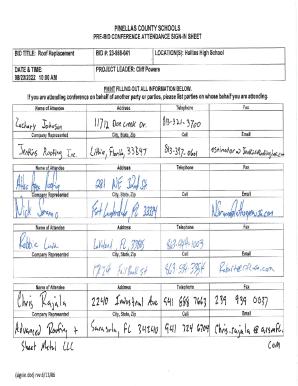 PINELLAS COUNTY SCHOOLS
PRE-BID CONFERENCE ATTENDANCE SIGN-IN SHEET
BID TITLE: Roof Replacement BID #: 23-968-041 LOCATION(S): Hollins High School
DATE & TIME: PROJECT LEADER: Cliff Powers
08/23/2022 10:00 AM
PRINT FILLING OUT ALL INFORMATION BELOW.
If you are attending conference on behalf of another party or parties, please list parties on whose behalf you are attending.
Name of Attendee Address Telephone Fax
Zachary Johnson 11712 Doe Creek Dr. 813-321-3700
Company Represented City, State, Zip Cell Email
Jenkins Roofing Inc. Florida, 813-
Name of Attendee Address Telephone Fax
Roofing 281 NE 32nd St
Company Represented City, State, Zip Cell Email
Nick Fort FL 33334
Name of Attendee Address Telephone Fax
Robbie Lakeland FL,
Company Represented City, State, Zip Cell Email
Name of Attendee Address Telephone Fax
Chris Rajala 2240 Industrial Ave 941 888 7663 239 939 0037
Company Represented City, State, Zip Cell Email
Advanced Roofing + Sarasota, FL 34240 941 724 6709 Chris.rajala@
Sheet Metal LLC com
(signin.dot) rev.6/13/06